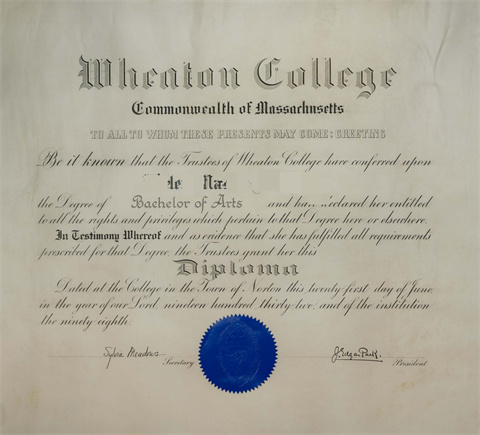 Wheaton College
Commonwealth of Massachusetts
TO ALL TO WHOM THESE PRESENTS MAY COME: GREETING
Be it known that the Trustees of Wheaton College have conferred upon
the Degree of Bachelor of Arts and declared her entitled
to all the rights and privileges which pertain to that Degree here or elsewhere.
In Testimony Whereof and as evidence that she has fulfilled all requirements
prescribed for that Degree, the Trustees grant her this
Diploma
Dated at the College in the Town of Norton this twenty-first day of June
in the year of our Lord, nineteen hundred thirty-two, and of the institution
the ninety-eighth.
Sylvia Meadows Secretary J. Edgar Park. President